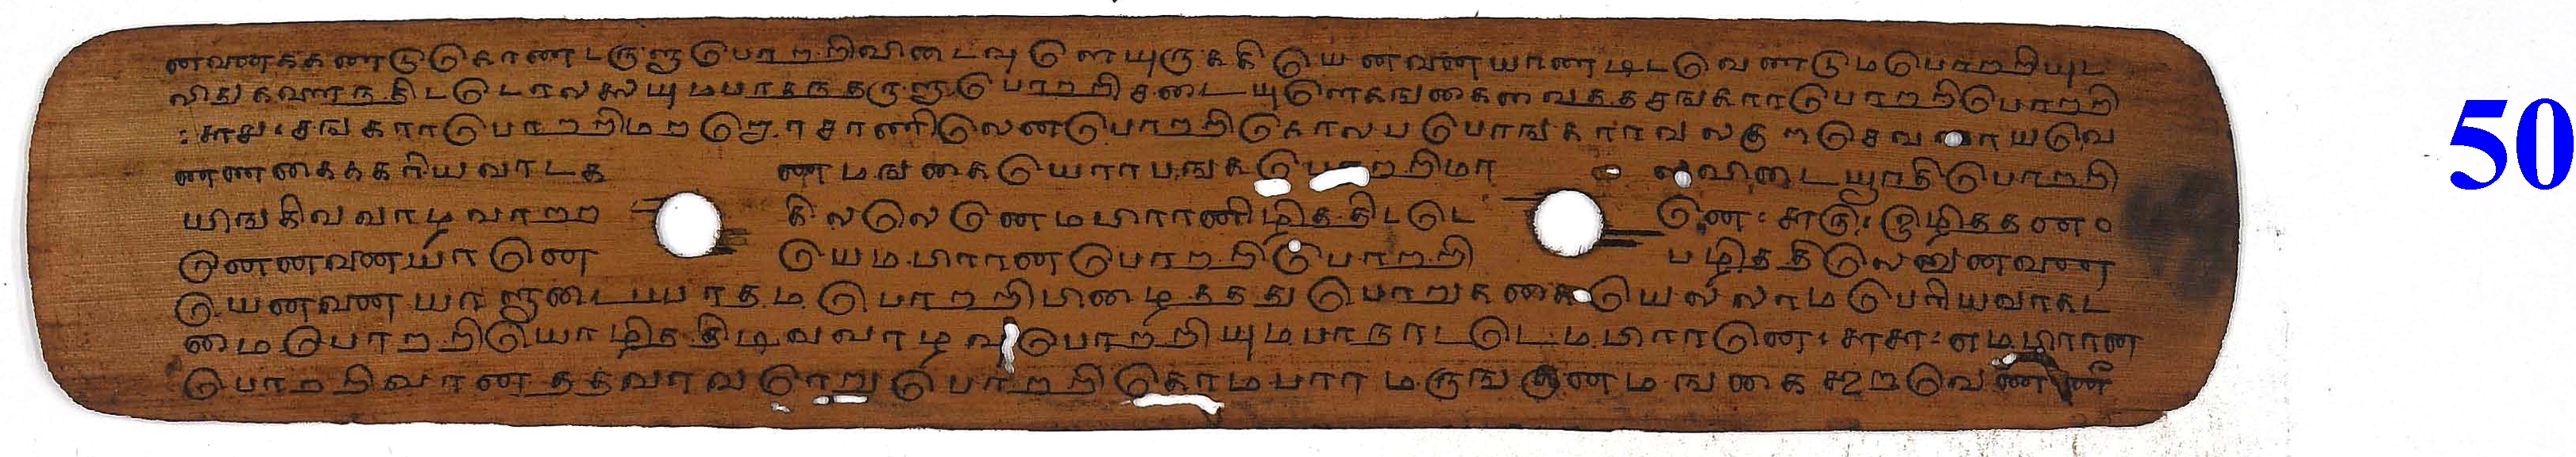 னவணக்கணடுகொணடருளுபொற்றிவிடைவுளெயுருக்கியெனவணயாணடிடவெணடுமபொற்றியுட
லிதுகளைநதிடடொலலையுமபரதநதருளுபொற்றிசடையுளெகஙகைவைத்தசஙகராபொற்றிபொற்றி
: சுசு : சஙகராபொற்றிமறறொர்சரணிலெணபொற்றிகொலபபொஙகராவலகுறசெவவாயவெ
ணணகைக்கரியவாடக ணமஙகையொர்பஙகபொற்றிமா லவிடையூர்திபொற்றி
யிஙகிவவாழவாறற கிலலெனெமபிரானிழித்திடடெ னெ : சுரு : இழித்தனன
னெனனவணயானெ யெமபிரானபொற்றிபொற்றி பழித்திலெனுனவண
யெனவணயாளுடைபபாதமபொற்றிபிழைத்ததுபொறுக்கையெலலாமபெரியவர்கட
மைபொற்றியொழித்திடிவவாழவுபொற்றியுமபர்நாடடெமபிரானெ : சுசா : எமபிரான
பொற்றிவானத்தவரவரெறுபொற்றிகொமபரார்மருஙகுனமஙகைகூறவெணணீ